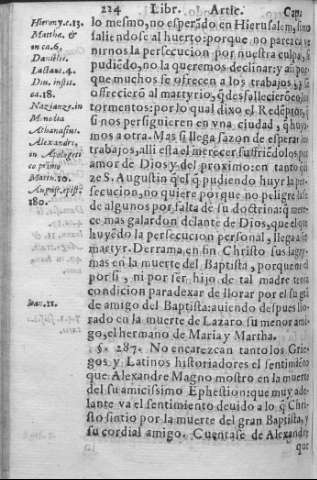 224 Libr. Artic. Cap.
Hieron y.c.13.
Matthæ. &
in ca.6.
Danielis.
Lactan.4.
Diu. instit.
ca.18.
Nazianze.in
Monodia
Athanasius.
Alexandri.
in Apologeti
co primo
Matth.10.
August.epist.
180.
Ioan.11.
lo mesmo, no esperãdo en Hierusalem, sino
saliendose al huerto: porque no parezca ve
nirnos la persecucion por nuestra culpa, si
pudiẽdo, no la queremos declinar: y aunq̃
que muchos se ofrecen a los trabajos, y
ofrecierõ al martyrio, q̃ desfallecierõ en los
tormentos: por lo qual dixo el Redẽptor, q̃
si nos persiguieren en vna ciudad, q̃ huya-
mos a otra. Mas si llega sazon de esperar los
trabajos, alli esta el merecer: sufriẽdolos por
amor de Dios y del proximo: en tanto q̃ di
ze S. Augustin q̃ el q̃ pudiendo huyr la per-
secucion, no quiere porque no peligre la fe
de algunos por falta de su doctrina: q̃ mere-
ce mas galardon delante de Dios, que el que
huyẽdo la persecucion personal, llega a ser
martyr. Derrama en fin Christo sus lagry-
mas en la muerte del Baptista, porque ni el
por si, ni por ser hijo de tal madre tenia
condicion para dexar de llorar por el su grã
de amigo del Baptista: auiendo despues llo-
rado en la muerte de Lazaro su menor ami-
go, el hermano de Maria y Martha.
§. 287. No encarezcan tanto los Grie-
gos y Latinos historiadores el sentimiẽto
que Alexandre Magno mostro en la muerte
del su amicissimo Ephestion: que muy ade-
lante va el sentimiento deuido a lo q̃ Chri-
sto sintio por la muerte del gran Baptista, y
su cordial amigo. Cuentase de Alexandre
que